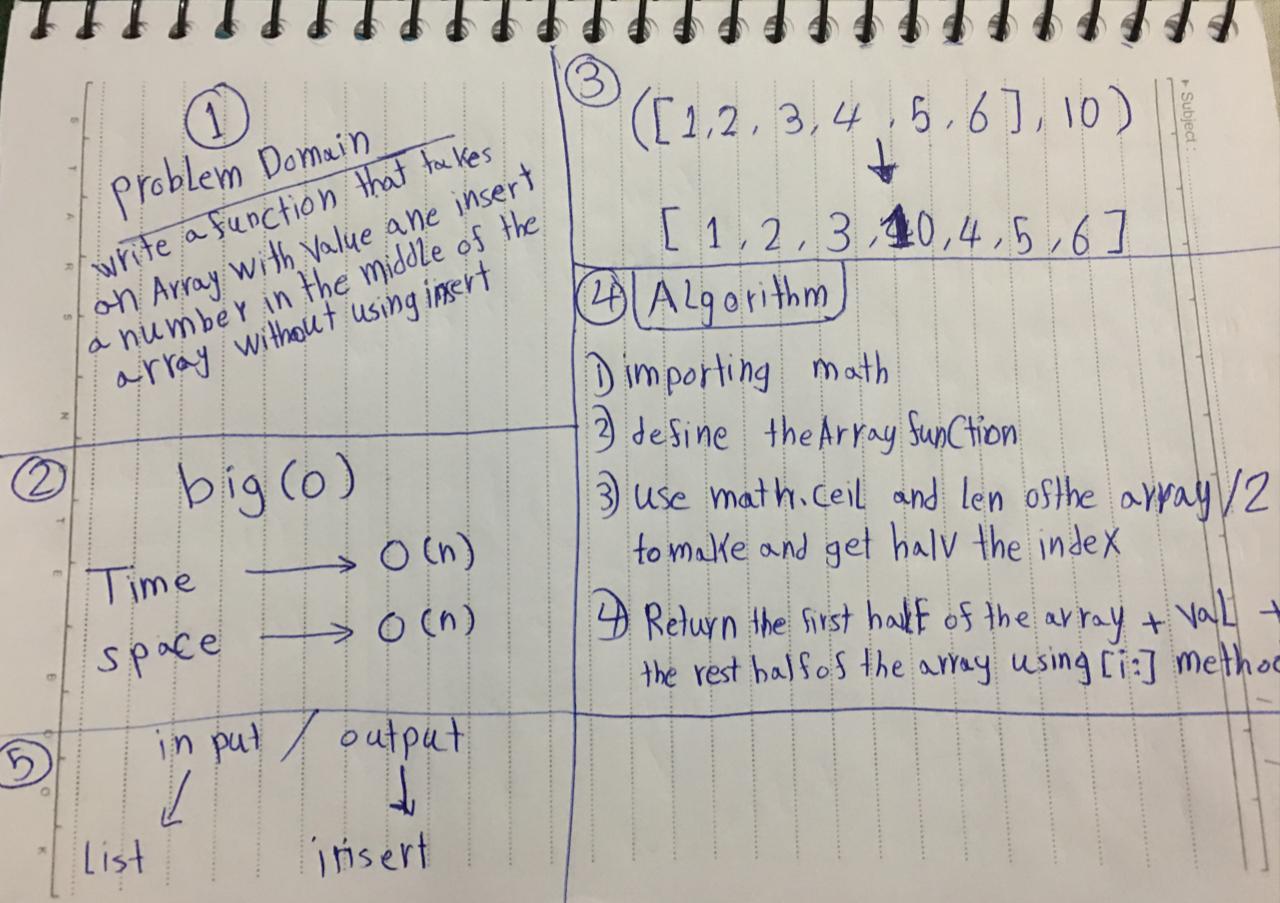 ①
problem Domain
write a function that takes
an Array with value ane insert
a number in the middle of the
array without using insert
②
big(o)
Time → O(n)
space → O(n)
③
([1,2,3,4,5,6],10)
↓
[1,2,3,10,4,5,6]
④ Algorithm
1) importing math
2) define the Array function
3) use math.ceil and len of the array/2
to make and get halv the index
4) Return the first half of the array + val +
the rest half of the array using [i:] metho
⑤
in put / output
List insert
Subject: